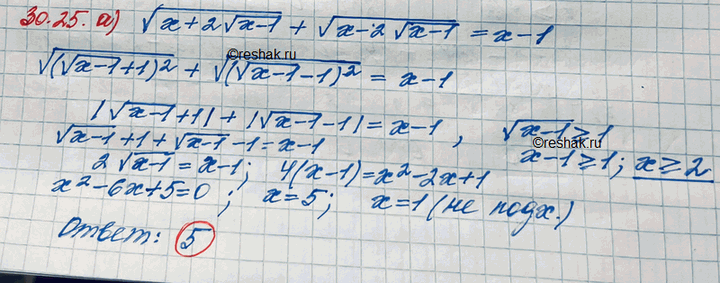 30.25. а) √(x+2√(x-1)) + √(x-2√(x-1)) = x-1
©reshak.ru
√((√(x-1)+1)²) + √((√(x-1)-1)²) = x-1
|√(x-1)+1| + |√(x-1)-1| = x-1, √(x-1) ≥ 1
©reshak.ru
√(x-1)+1+√(x-1)-1=x-1 x-1≥1; x≥2
2√(x-1) = x-1; 4(x-1)=x²-2x+1
x²-6x+5=0; x=5; x=1 (не подх.)
Ответ: 5